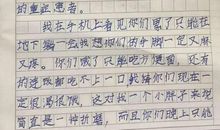 的重症患者。
我在手机上看见你们累了只能在
地下躺一会我想你们的手脚一定又麻
又疼。你们饿了只能吃方便面，还有
的连饭都吃不上一口我猜你们现在一
定很渴很饿，这对我一个小胖子来说
简直是一种折磨，而且你们晚上只能